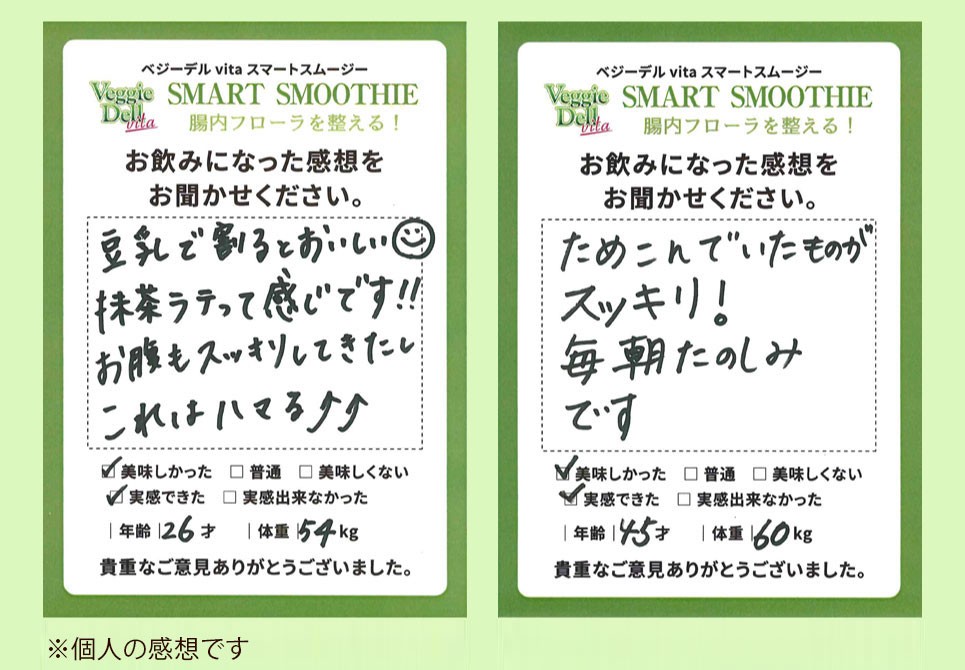 ベジーデル vita スマートスムージー
Veggie Dell vita
SMART SMOOTHIE
腸内フローラを整える！
お飲みになった感想を
お聞かせください。
豆乳で割るとおいしい
抹茶ラテって感じです!!
お腹もスッキリしてきたし
これはハマる⤴⤴
☑ 美味しかった □ 普通 □ 美味しくない
☑ 実感できた □ 実感出来なかった
｜年齢｜26才 ｜体重｜54kg
貴重なご意見ありがとうございました。
ベジーデル vita スマートスムージー
Veggie Dell vita
SMART SMOOTHIE
腸内フローラを整える！
お飲みになった感想を
お聞かせください。
ためこんでいたものが
スッキリ！
毎朝たのしみ
です
☑ 美味しかった □ 普通 □ 美味しくない
☑ 実感できた □ 実感出来なかった
｜年齢｜45才 ｜体重｜60kg
貴重なご意見ありがとうございました。
※個人の感想です